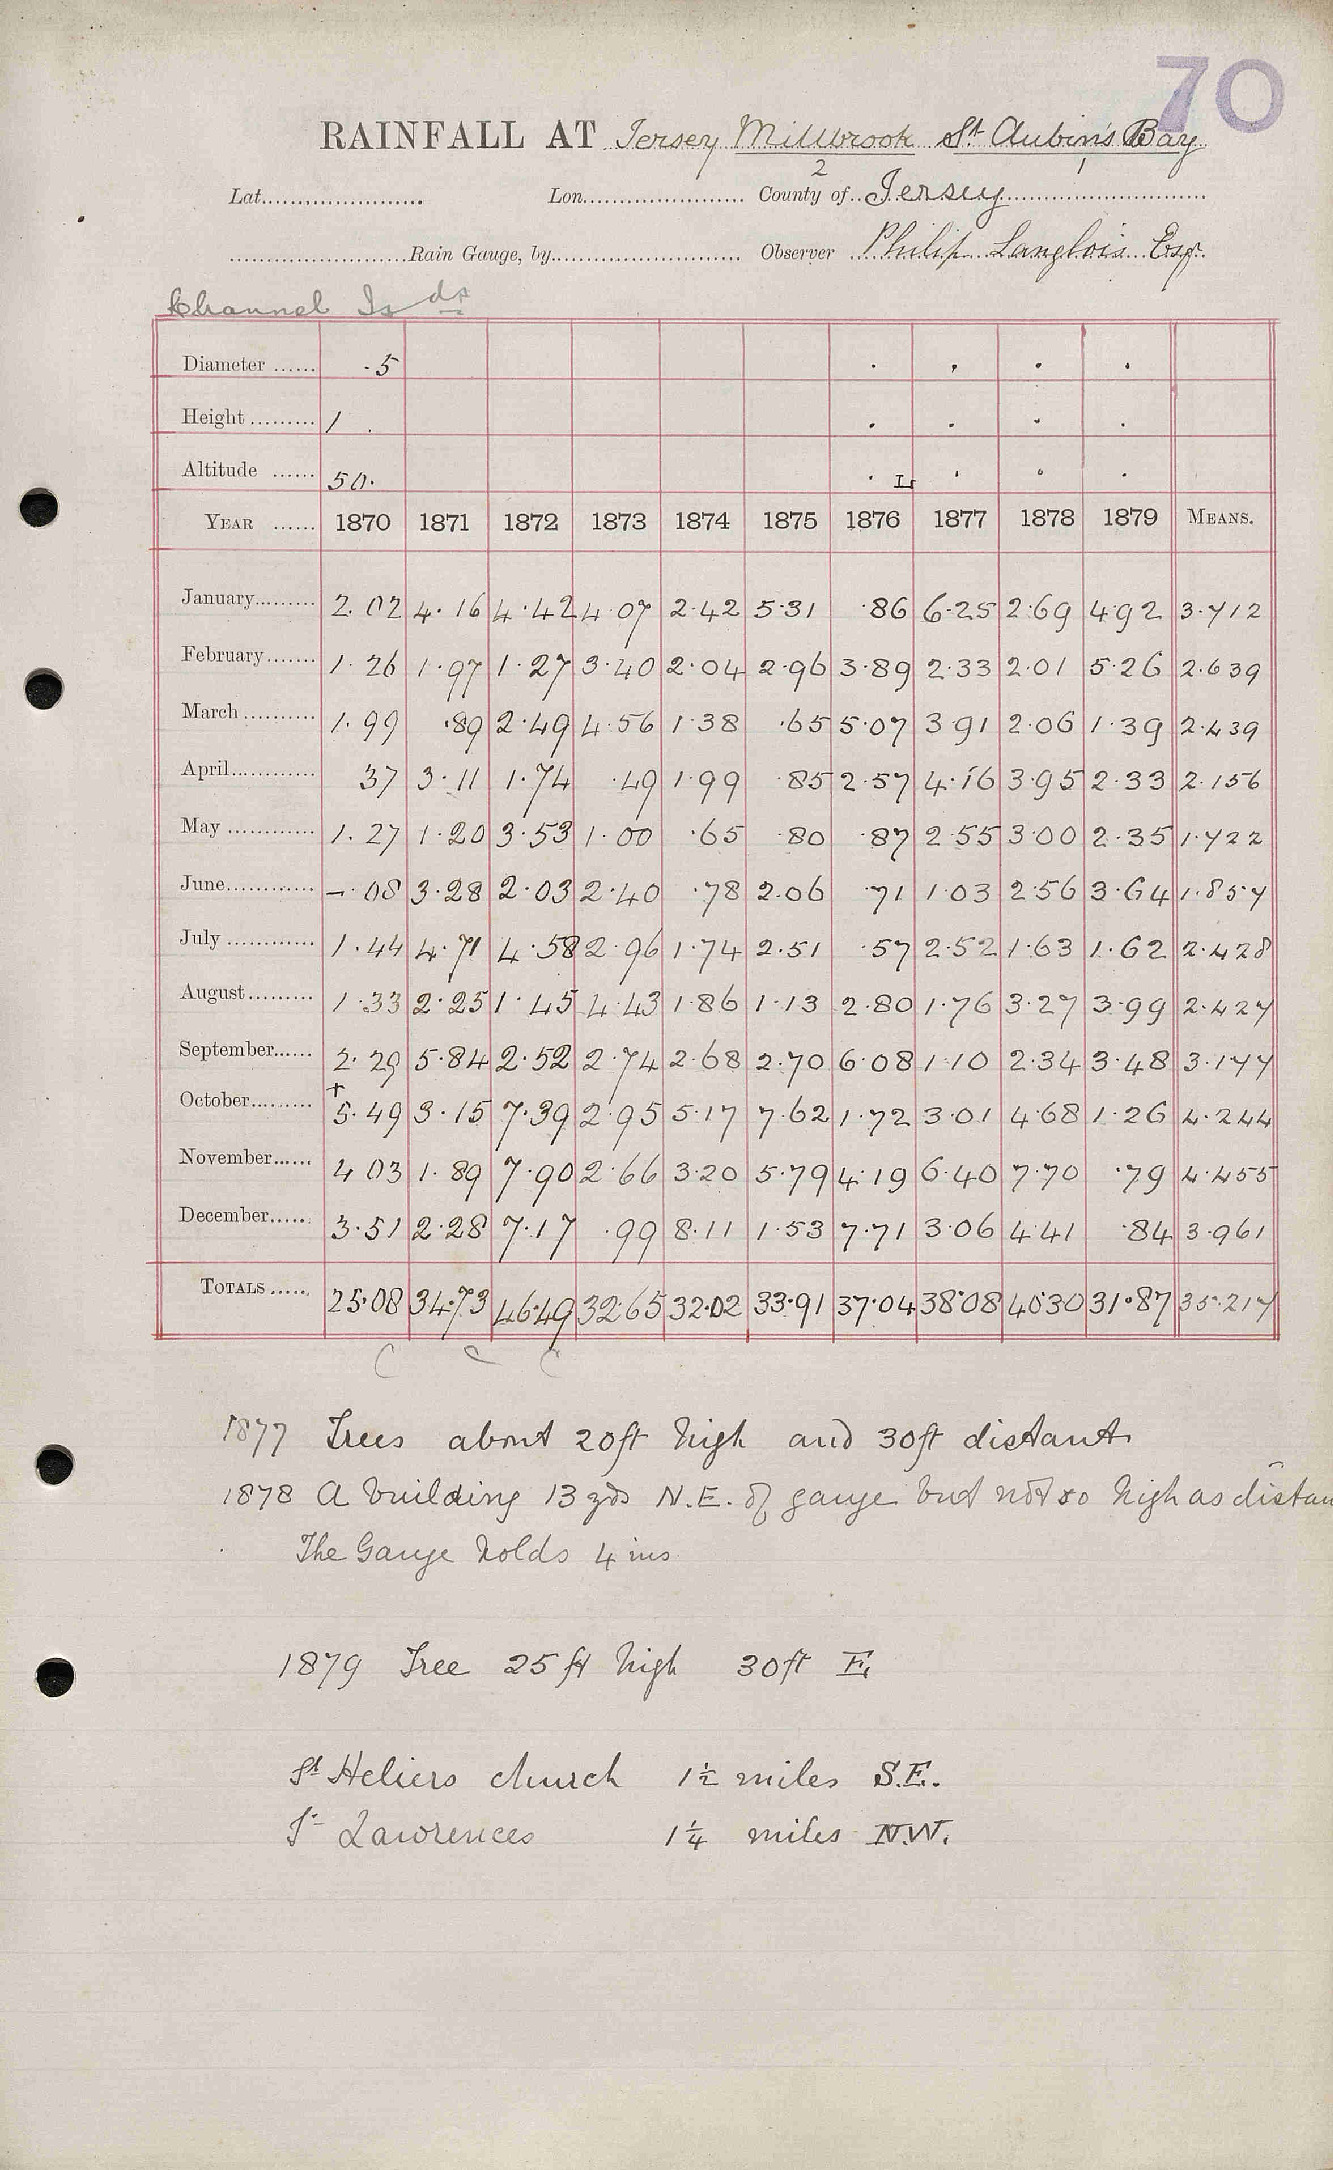 70
RAINFALL AT Jersey Millbrook St Aubin's Bay
2
Lat. Lon. County of Jersey
Rain Gauge, by Observer Philip Langlois Esqr.
Channel Is ds
Diameter ...... ·5
Height ......... 1 .
Altitude ...... 50.
YEAR ...... 1870 1871 1872 1873 1874 1875 1876 1877 1878 1879 MEANS.
January 2.02 4.16 4.42 4.07 2.42 5.31 .86 6.25 2.69 4.92 3.712
February 1.26 1.97 1.27 3.40 2.04 2.96 3.89 2.33 2.01 5.26 2.639
March 1.99 .89 2.49 4.56 1.38 .65 5.07 3.91 2.06 1.39 2.439
April 37 3.11 1.74 .49 1.99 .85 2.57 4.16 3.95 2.33 2.156
May 1.27 1.20 3.53 1.00 .65 80 .87 2.55 3.00 2.35 1.722
June –.08 3.28 2.03 2.40 .78 2.06 71 1.03 2.56 3.64 1.857
July 1.44 4.71 4.58 2.96 1.74 2.51 .57 2.52 1.63 1.62 2.428
August 1.33 2.25 1.45 4.43 1.86 1.13 2.80 1.76 3.27 3.99 2.427
September 2.29 5.84 2.52 2.74 2.68 2.70 6.08 1.10 2.34 3.48 3.177
October +5.49 3.15 7.39 2.95 5.17 7.62 1.72 3.01 4.68 1.26 4.244
November 4.03 1.89 7.90 2.66 3.20 5.79 4.19 6.40 7.70 .79 4.455
December 3.51 2.28 7.17 .99 8.11 1.53 7.71 3.06 4.41 .84 3.961
TOTALS 25.08 34.73 46.49 32.65 32.02 33.91 37.04 38.08 40.30 31.87 35.217
C C C
1877 Trees about 20ft high and 30ft distant
1878 A building 13 yds N.E. of gauge but not so high as distan
The Gauge holds 4 ins
1879 Tree 25 ft high 30ft E.
St Heliers church 1½ miles S.E.
St Lawrences 1¼ miles N.W.